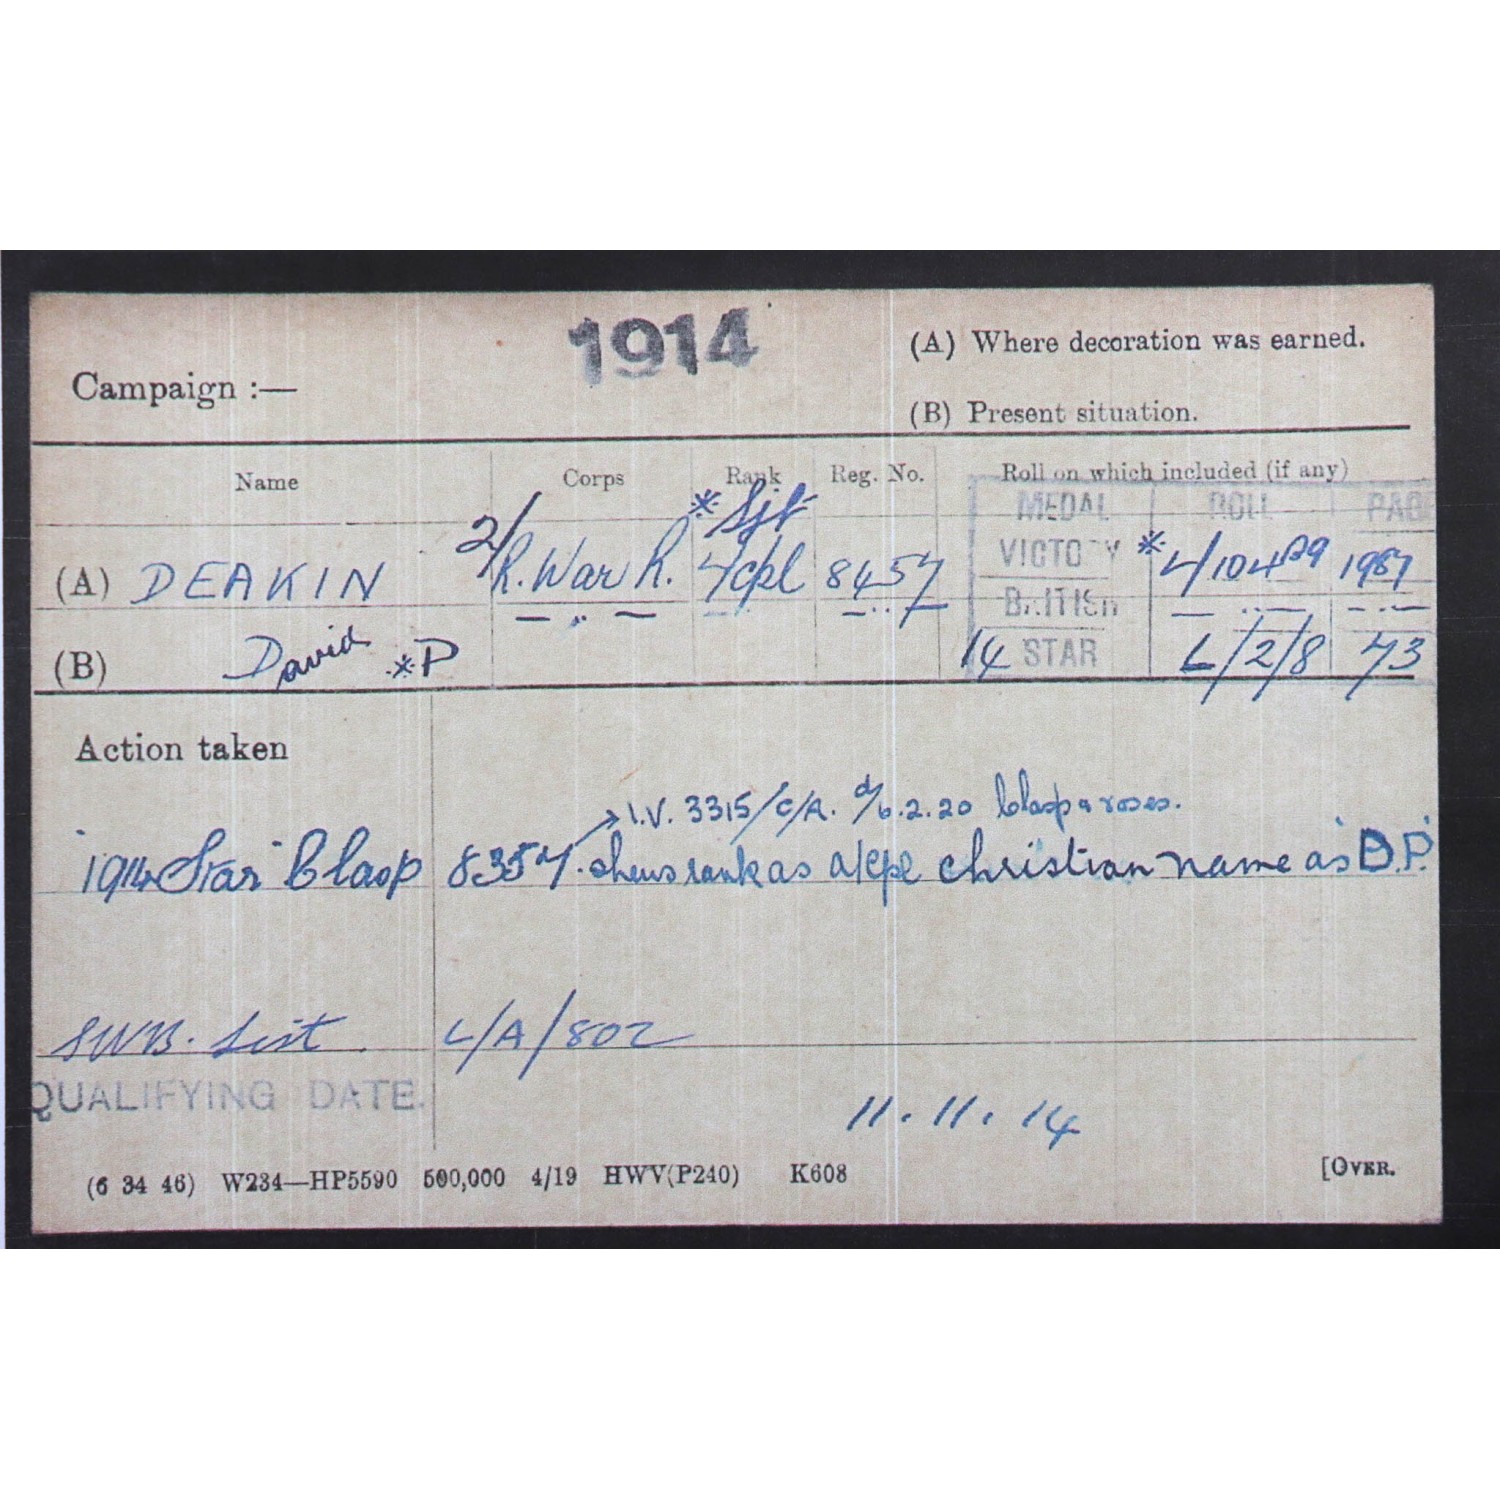 1914
(A) Where decoration was earned.
Campaign :—
(B) Present situation.
Name Corps Rank Reg. No. Roll on which included (if any)
* Sjt MEDAL ROLL PAGE
(A) DEAKIN 2/R. War R. cpl 8457 VICTORY * L/104 1987
— „ — — „ — BRITISH — „ — — „ —
(B) David * P 14 STAR L/2/8 73
Action taken
I.V. 3315/C/A. d/6.2.20 Clasp & roses.
"1914 Star" Clasp 8357. shews rank as a/cpl christian name as "D.P."
SWB. List. L/A/802
QUALIFYING DATE. 11. 11. 14
(6 34 46) W234—HP5590 500,000 4/19 HWV(P240) K608 [OVER.